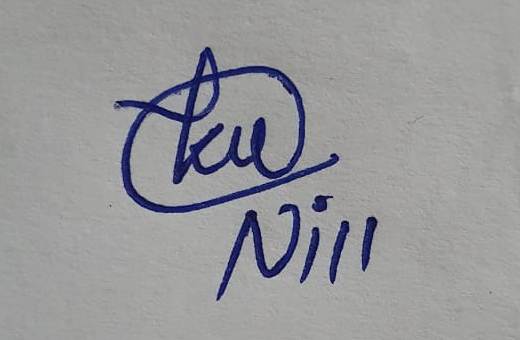 ku
Nill